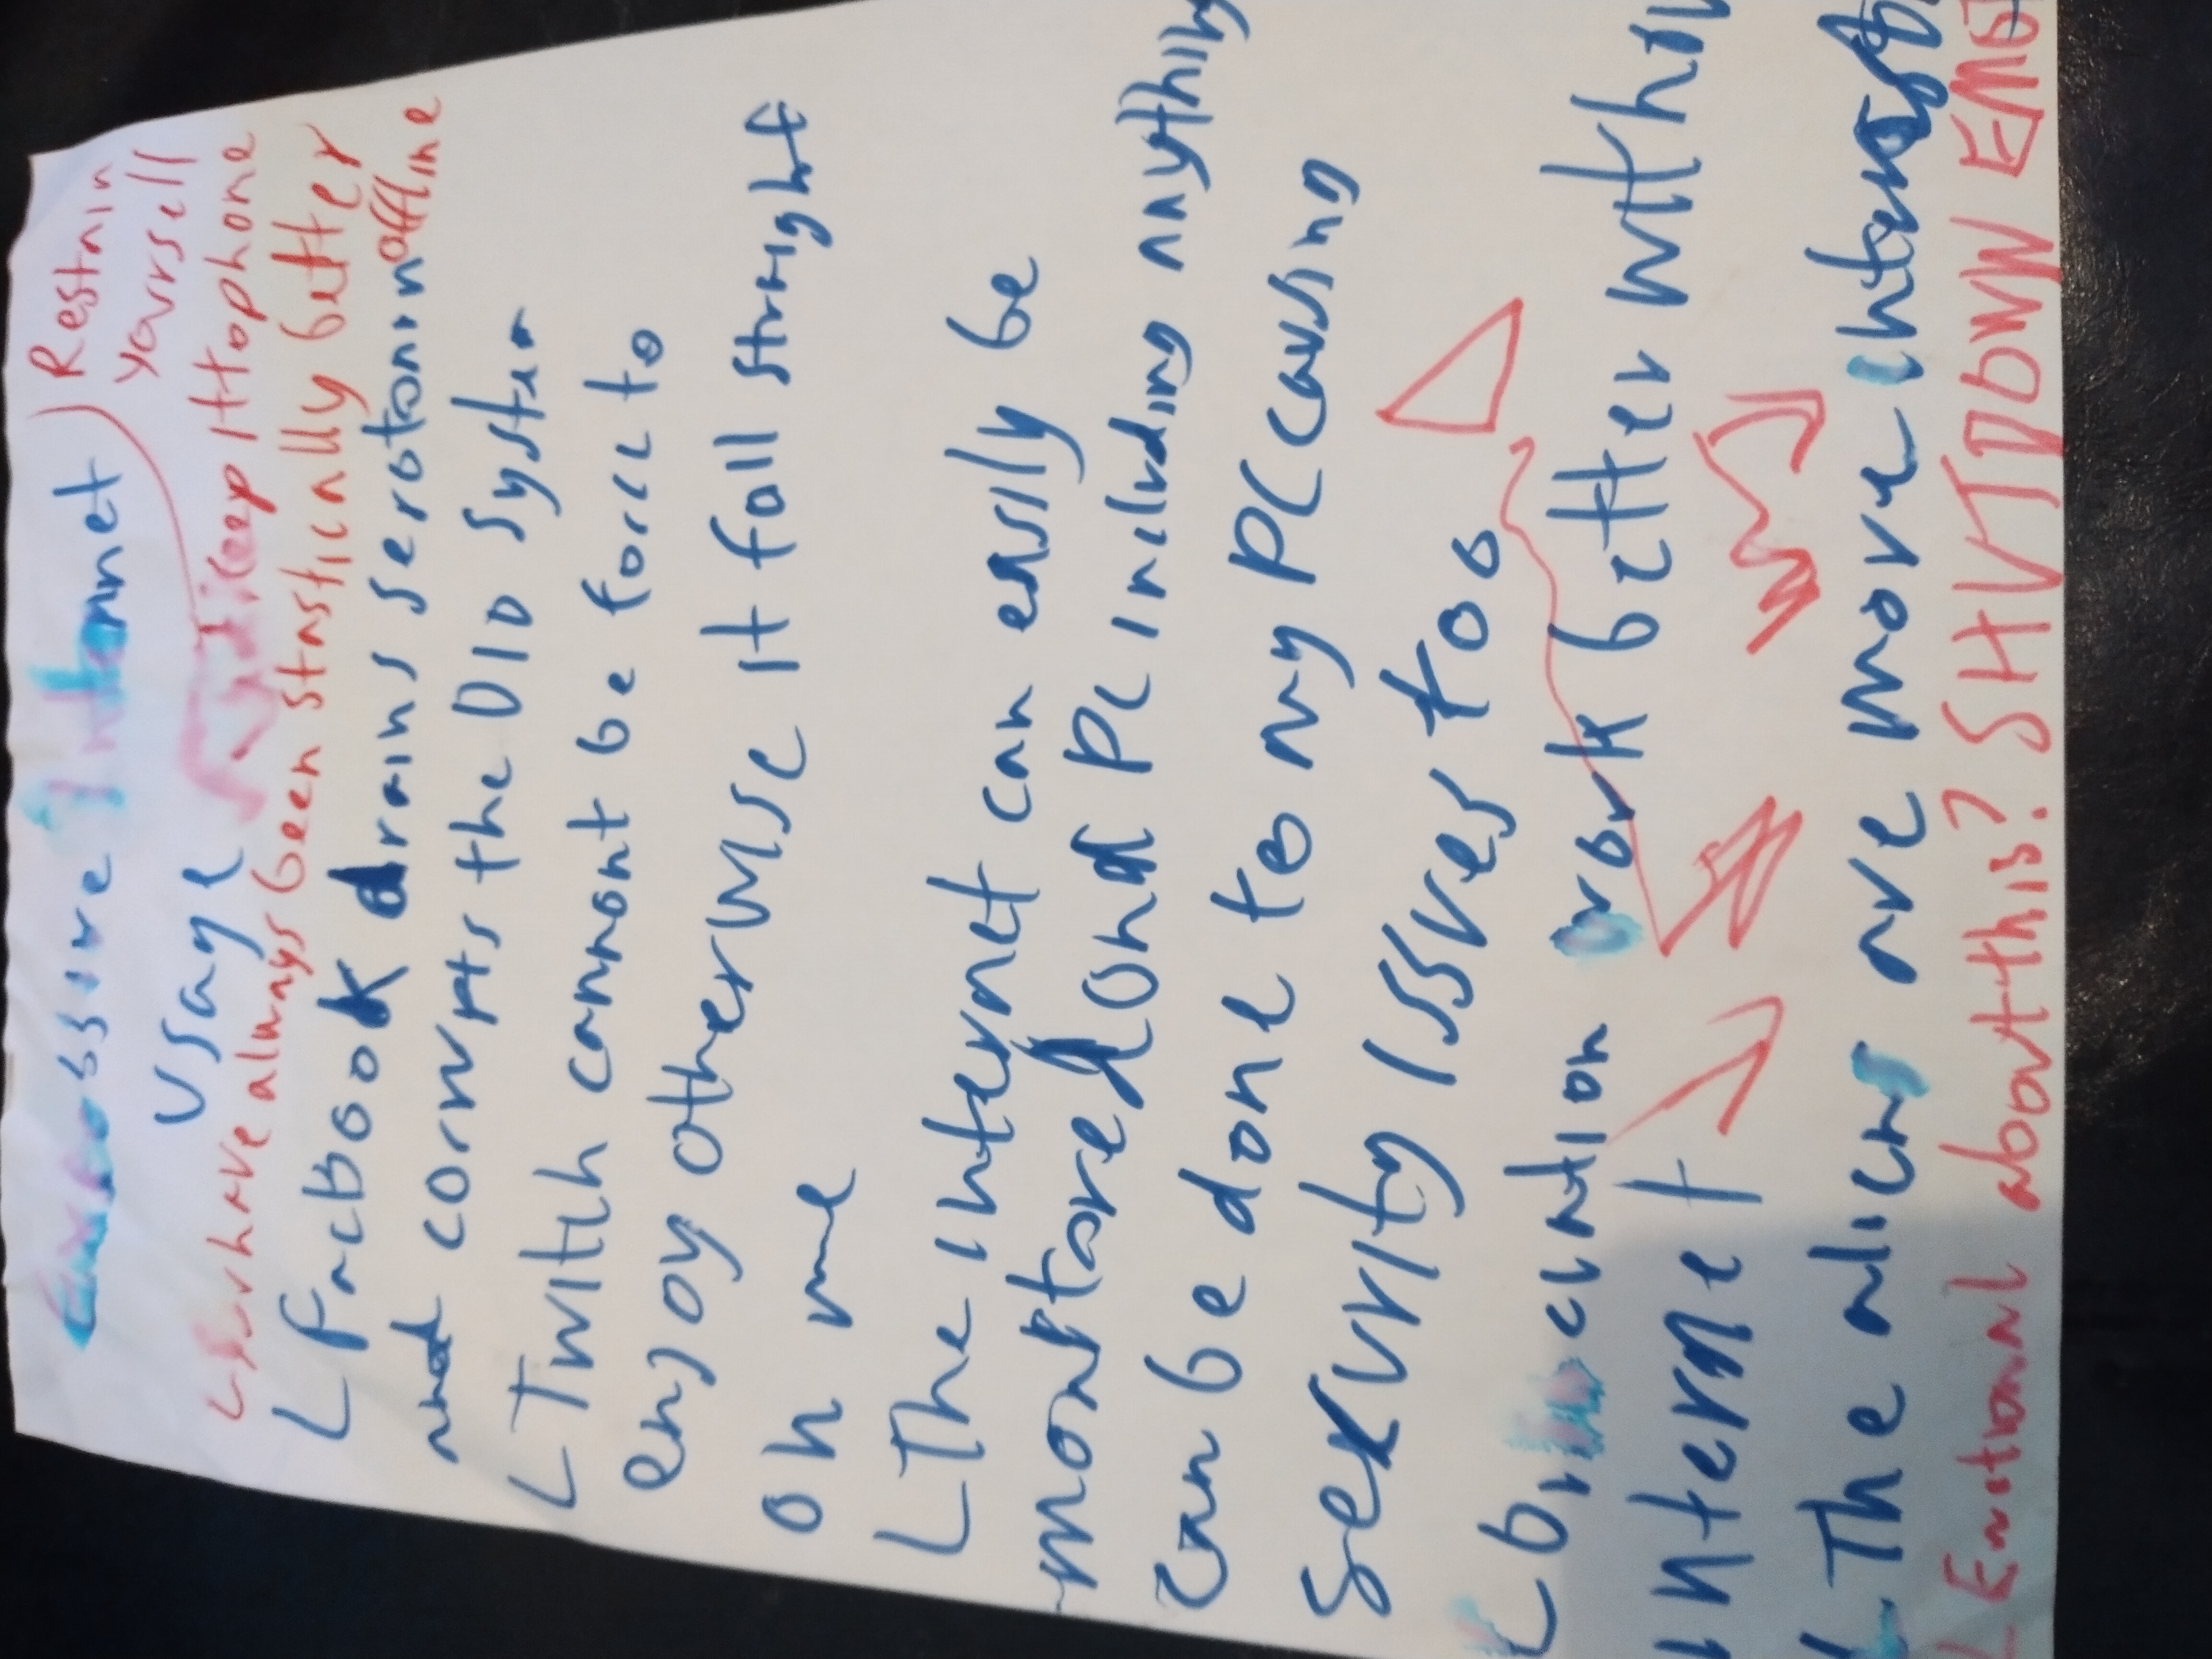 Excessive Internet
Restrain
yourself
usage
keep it to phone
L have always been stastically better
offline
L Facbook drains serotonin
and corrupts the DIO system
L Twith cannont be force to
enjoy otherwise it fall straight
on me
L The internet can easily be
monitored on PC including anything
can be done to my PC causing
security issues too
L education work better with
internet
L The are more
L Emotional abouthis? SHUTDOWN EVE